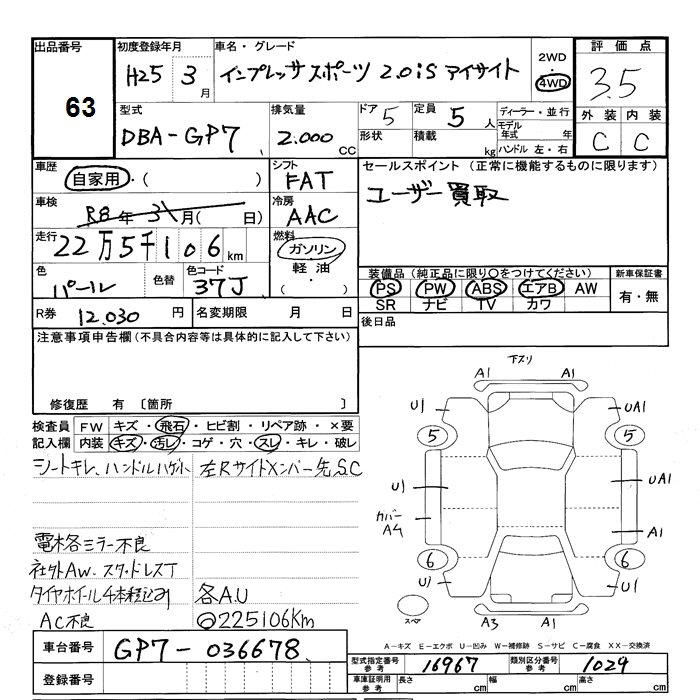 出品番号
63
初度登録年月
H25 3月
車名・グレード
インプレッサスポーツ 2.0iS アイサイト
2WD
・
4WD
評価点
3.5
外装 内装
C C
型式
DBA-GP7
排気量
2.000 CC
ドア 5
形状
定員 5人
積載 kg
ディーラー・並行
モデル年式 年
ハンドル 左・右
車歴
自家用・( )
車検
R8年 3月( 日)
走行
22万5千106km
色
パール
色替
色コード
37J
シフト
FAT
冷房
AAC
燃料
ガソリン
軽油
( ・ )
セールスポイント (正常に機能するものに限ります)
ユーザー買取
装備品 (純正品に限り○をつけてください)
PS PW ABS エアB AW
SR ナビ TV カワ
新車保証書
有・無
R券 12,030円
名変期限 月 日
後日品
注意事項申告欄(不具合内容等は具体的に記入して下さい)
修復歴 有 〔箇所 〕
検査員記入欄
FW キズ・飛石・ヒビ割・リペア跡・×要
内装 キズ・汚レ・コゲ・穴・スレ・キレ・破レ
シートキレ、ハンドルハゲ
左Rサイドメンバー先S.C
電格ミラー不良
社外AW、スタッドレスT
タイヤホイール4本積込み
各A.U
AC不良
◎225106Km
下スリ
A1 A1
U1 UA1
5 5
U1 UA1
カバー
A4
A1
6 6
U1 U1
スペア
A3 A1
A―キズ E―エクボ U―凹み W―補修跡 S―サビ C―腐食 XX―交換済
車台番号
GP7-036678
登録番号
型式指定番号 参考
16967
類別区分番号 参考
1029
車庫証明用 参考
長さ cm 幅 cm 高さ cm